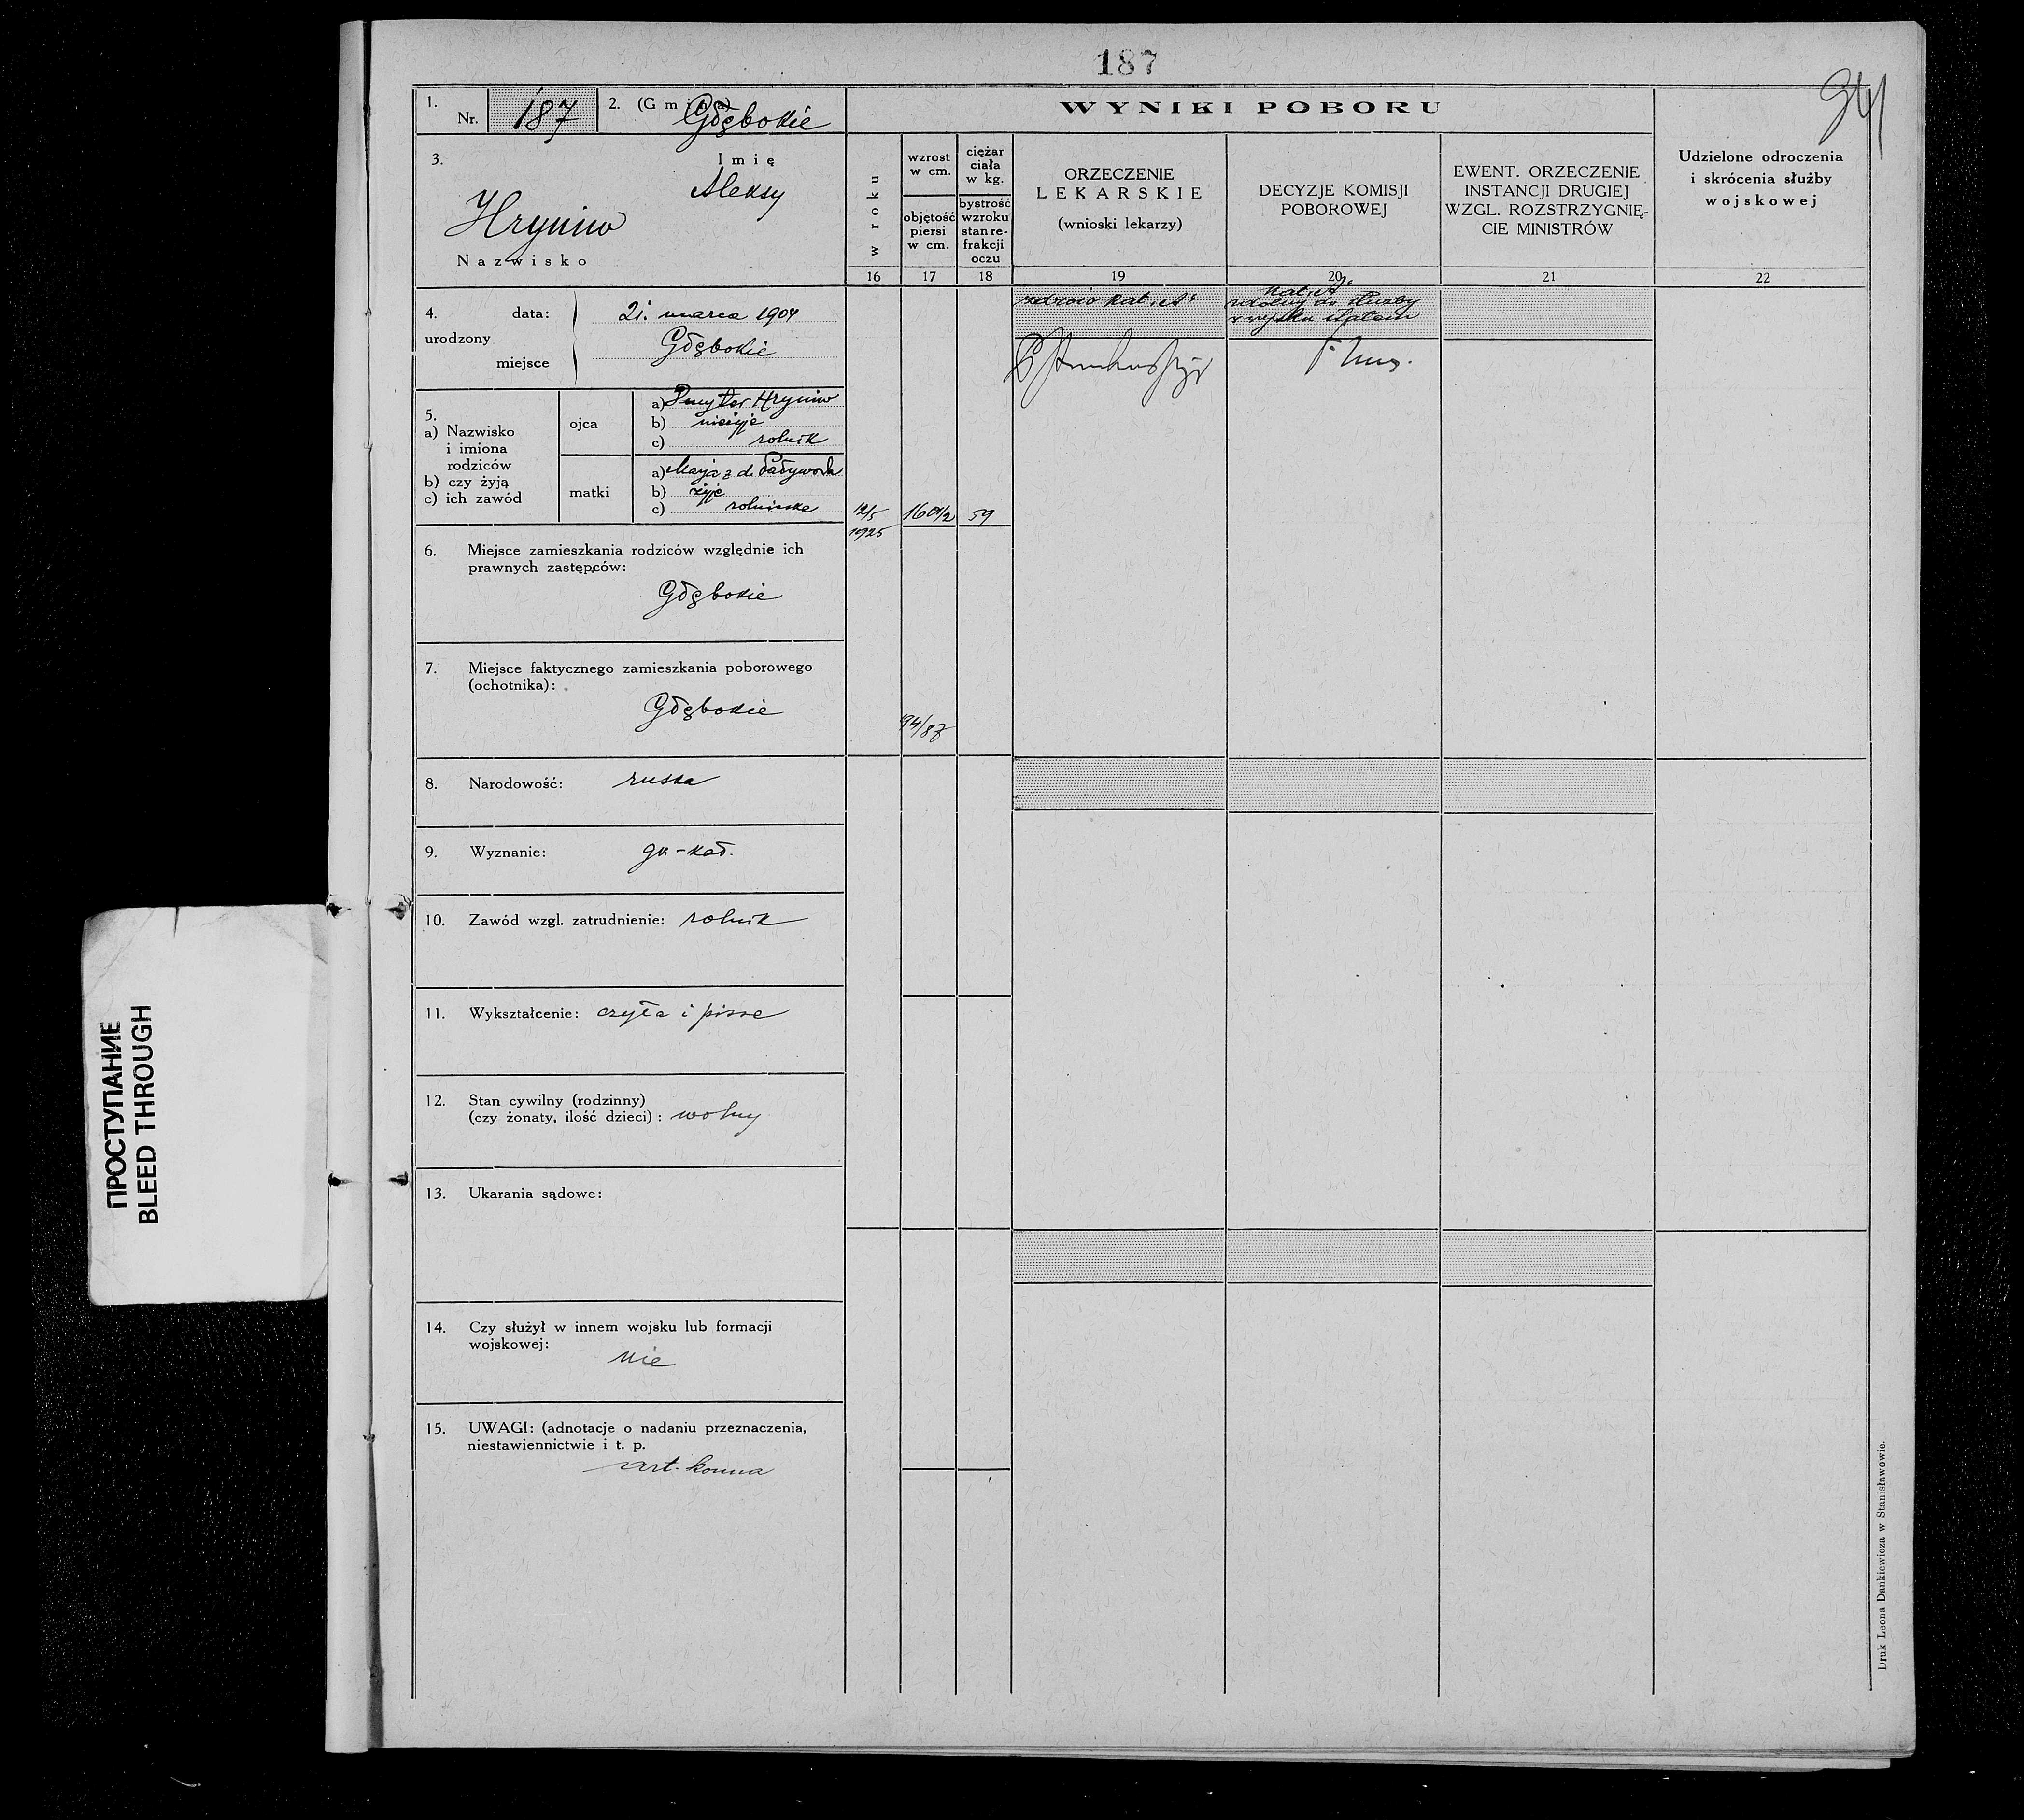 187
1. Nr. 187 2. (Gmina) Głębokie
3. Imię
Aleksy
Hryniw
Nazwisko
4. urodzony
data: 21. marca 1904
miejsce Głębokie
5.
a) Nazwisko
i imiona
rodziców
b) czy żyją
c) ich zawód
ojca
a) Dmyter Hryniw
b) nieżyje
c) rolnik
matki
a) Marja z d.
b) żyje
c)
6. Miejsce zamieszkania rodziców względnie ich
prawnych zastępców:
Głębokie
7. Miejsce faktycznego zamieszkania poborowego
(ochotnika):
Głębokie
8. Narodowość: ruska
9. Wyznanie: gr-kat.
10. Zawód wzgl. zatrudnienie: rolnik
11. Wykształcenie: czyta i pisze
12. Stan cywilny (rodzinny)
(czy żonaty, ilość dzieci): wolny
13. Ukarania sądowe:
14. Czy służył w innem wojsku lub formacji
wojskowej:
nie
15. UWAGI: (adnotacje o nadaniu przeznaczenia,
niestawiennictwie i t. p.
art. konna
WYNIKI POBORU
w roku
16
12/5
1925
wzrost
w cm.
objętość
piersi
w cm.
17
94/87
ciężar
ciała
w kg.
bystrość
wzroku
stan re-
frakcji
oczu
18
59
ORZECZENIE
LEKARSKIE
(wnioski lekarzy)
19
DECYZJE KOMISJI
POBOROWEJ
20
kat. A
zdolny do służby
w wojsku stałem
EWENT. ORZECZENIE
INSTANCJI DRUGIEJ
WZGL. ROZSTRZYGNIĘ-
CIE MINISTRÓW
21
Udzielone odroczenia
i skrócenia służby
wojskowej
22
Druk Leona Dankiewicza w Stanisławowie.
ПРОСТУПАНИЕ
BLEED THROUGH